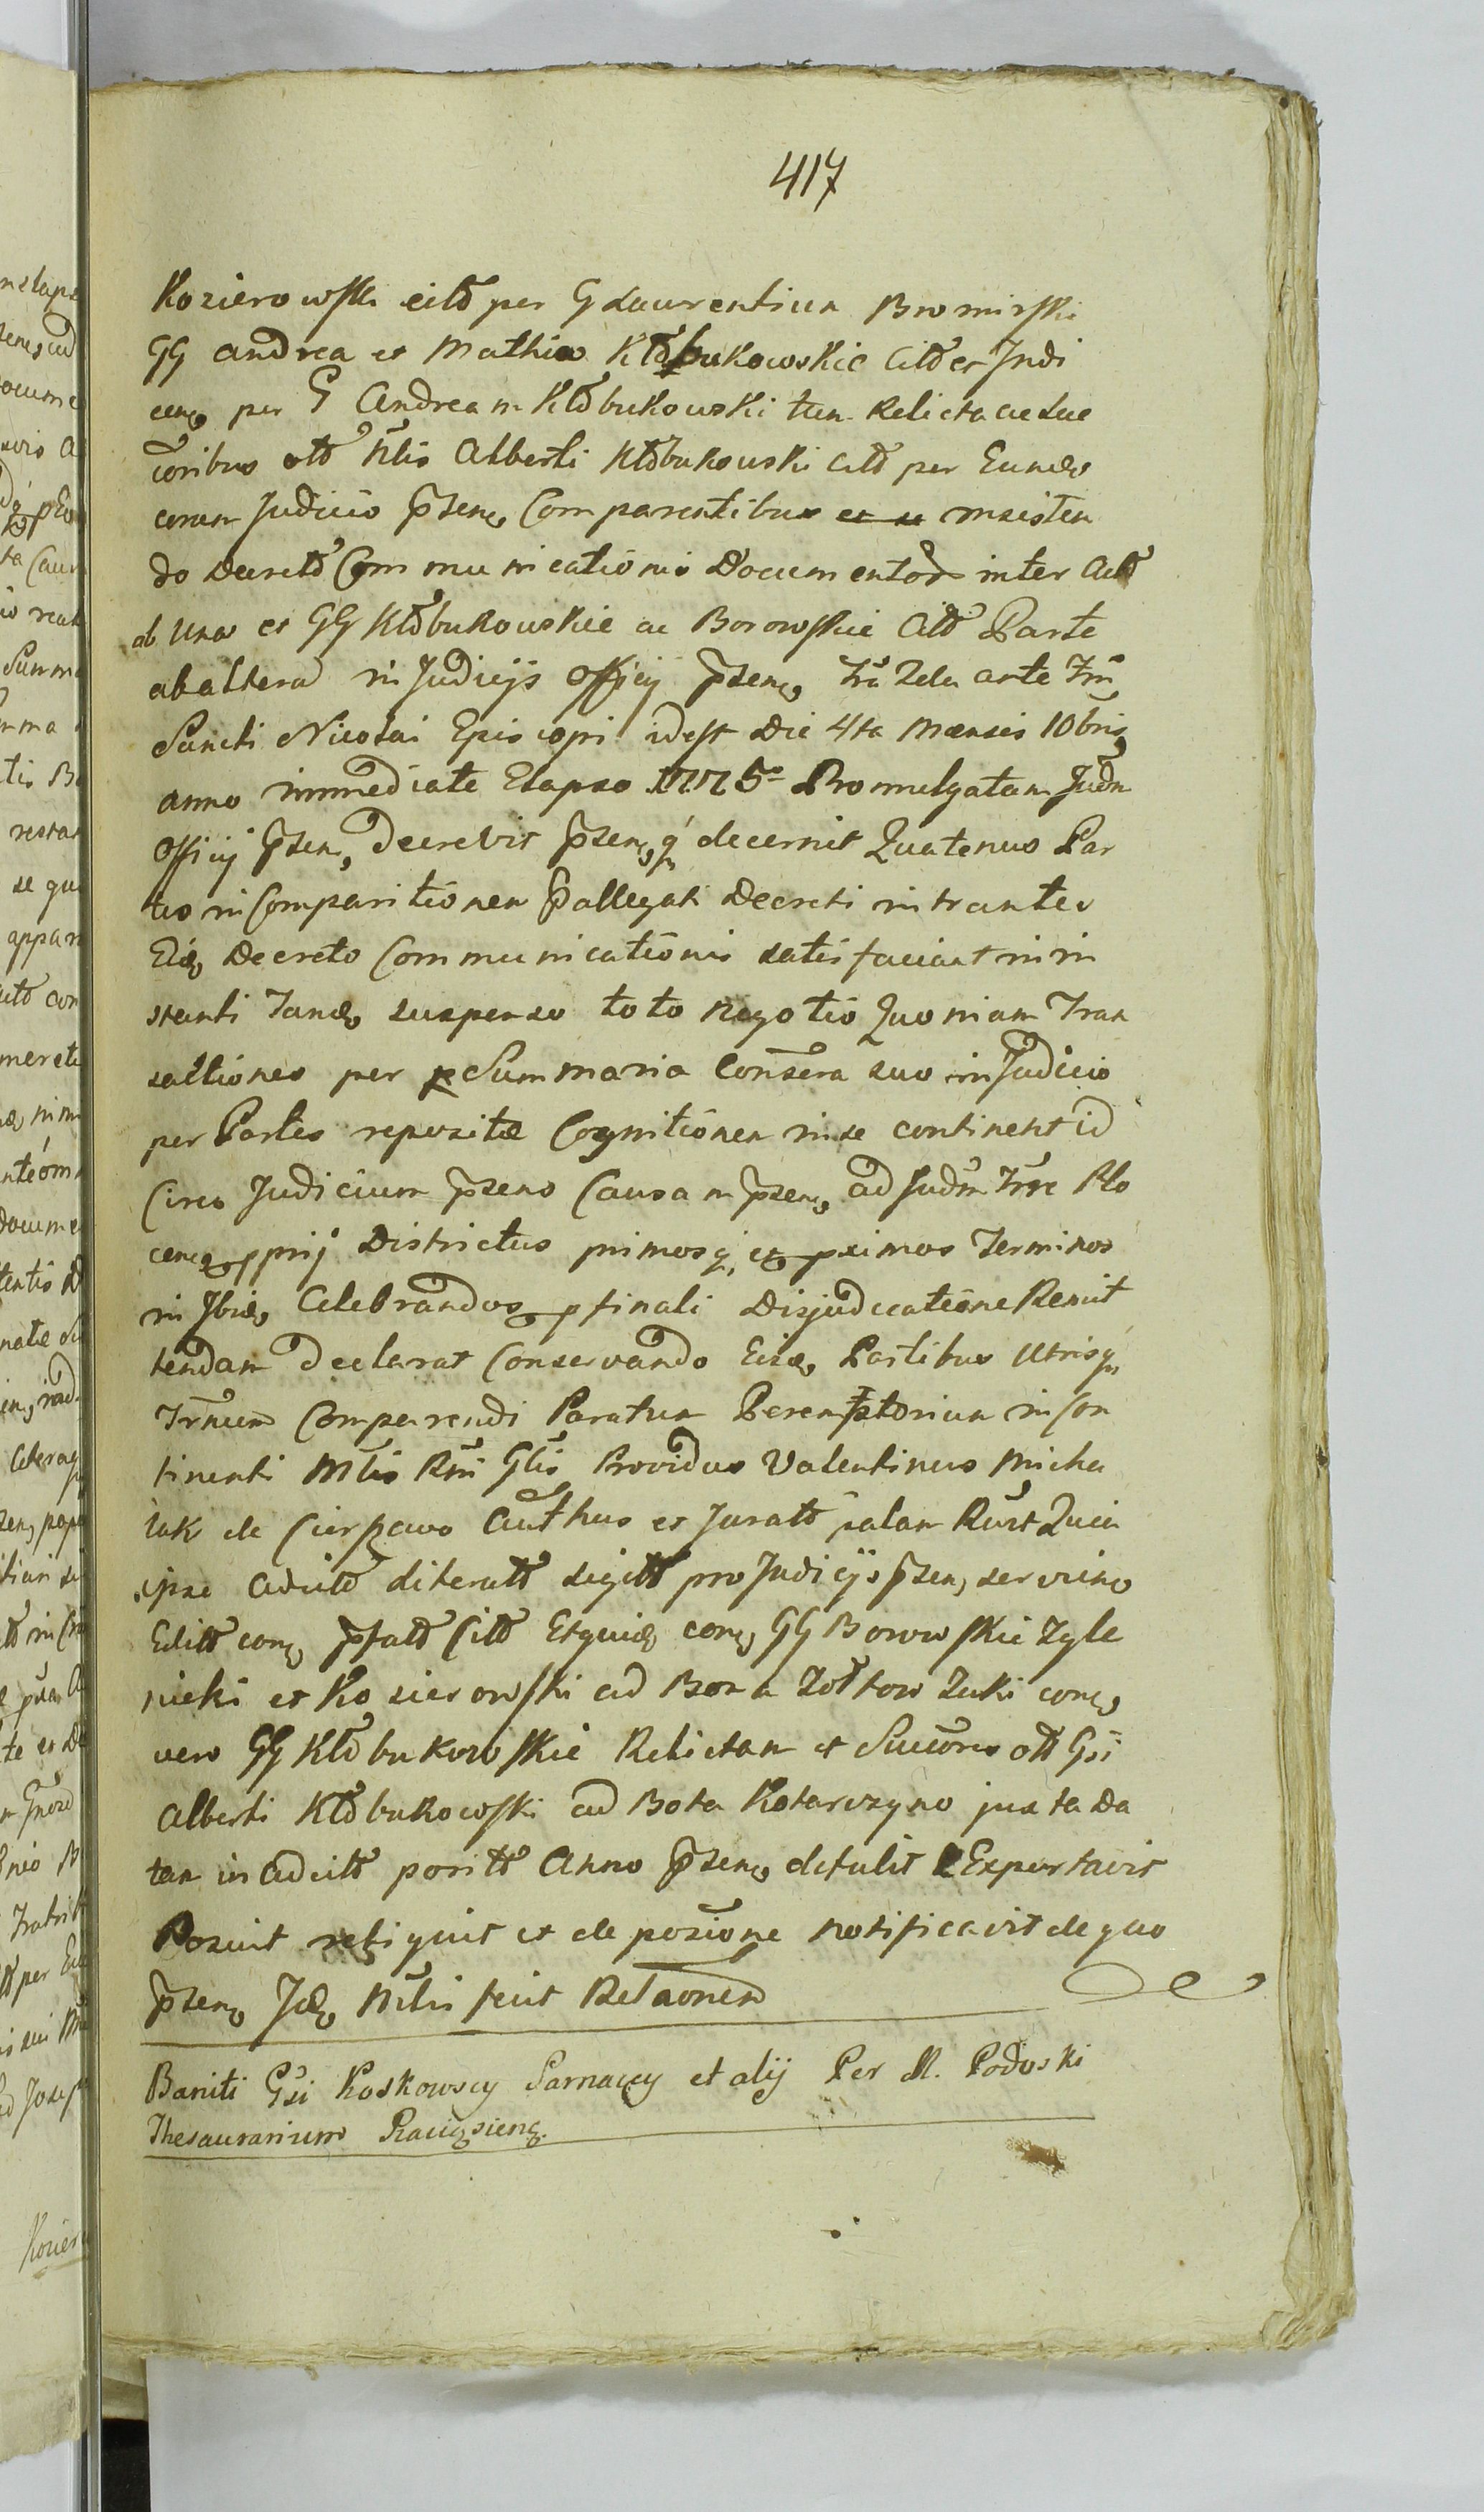 417
Kozierowski citt per G Laurentium Bromirski
GG Andrea et Mathia Kłobukowskie Citt et Indi
cenq per G Andream Kłobukowski tum Relicta ac Suc
coribus ott Nlis Alberti Kłobukowski citt per Eundo
coram Judicio psenq Comparentibus et se insisten
do Decreto Communicationis Documentor inter Act
ab Una et GG Kłobukowskie ac Borowskie Citt Parte
ab altera in Judicijs Officij psenq Fra 2da ante Fm
Sancti Nicolai Episcopi idest Die 4ta Mensis 10bris
anno immediate Elapso 1775o Promulgatam Judm
Officij psen, Decrevit psenq decernit Quatenus Par
tes in Comparitionem pallegati Decreti intrantes
Eid, Decreto Communicationis satisfaciant in in
stanti Tando suspenso toto Negotio Quoniam Tran
sactiones per Summaria Consera suo in Judicio
per Partes repositæ Cognitionem in se continent id
Circo Judicium psens Causam psenq ad Judm Trre Plo
cenq pprij Districtus primosq et pximos Terminos
in Ibid, Celebrandos p finali Disjudicatione Remit
tendam declarat Conservando Eisd, Partibus Utrisq
Trnum Comparendi Paratum Peremptorium in Con
tinenti Mtis Rni Glis Providus Valentinus Micha
lak de Cierpzewo Authus et Juratt palam Rurt Quia
ipse aditt literatt sigitt pro Judicijs psenq serviens
Editt conq pfatt Citt Etquid, conq GG Borowskie Zyle
nicki et Kosierowski ad Bona Zołtow Zuki conq
vero GG Kłobukowskie Relictam et Succores ott Gsi
Alberti Kłobukowski ad Bota Kotarczyno juxta Da
tam in aditt positt Anno psenq detulit Exportavit
Posuit reliquit et de pozione notificavit de quo
psenq Jdq Mtri fecit Relaonem
Baniti Gsi Koskowscy Sarnaccy et alij Per M. Podoski
Thesaurarium Raciązsienq.